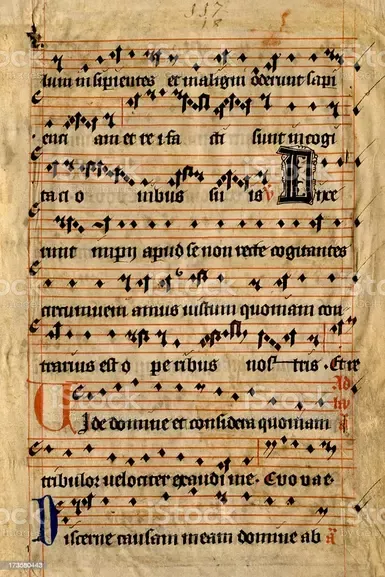 117
lium insipientes et maligni oderunt sapi
enci am et rei fa cti sunt in cogi
taci o nibus su is ℣ Dixe
runt impii apud se non recte cogitantes
circumveniamus iustum quoniam con
trarius est o peribus nos tris. Et re
Ad
Vide domine et considera quoniam
tribulor velociter exaudi me. Evovae.
Discerne causam meam domine ab a
iStock
Credit
173680443